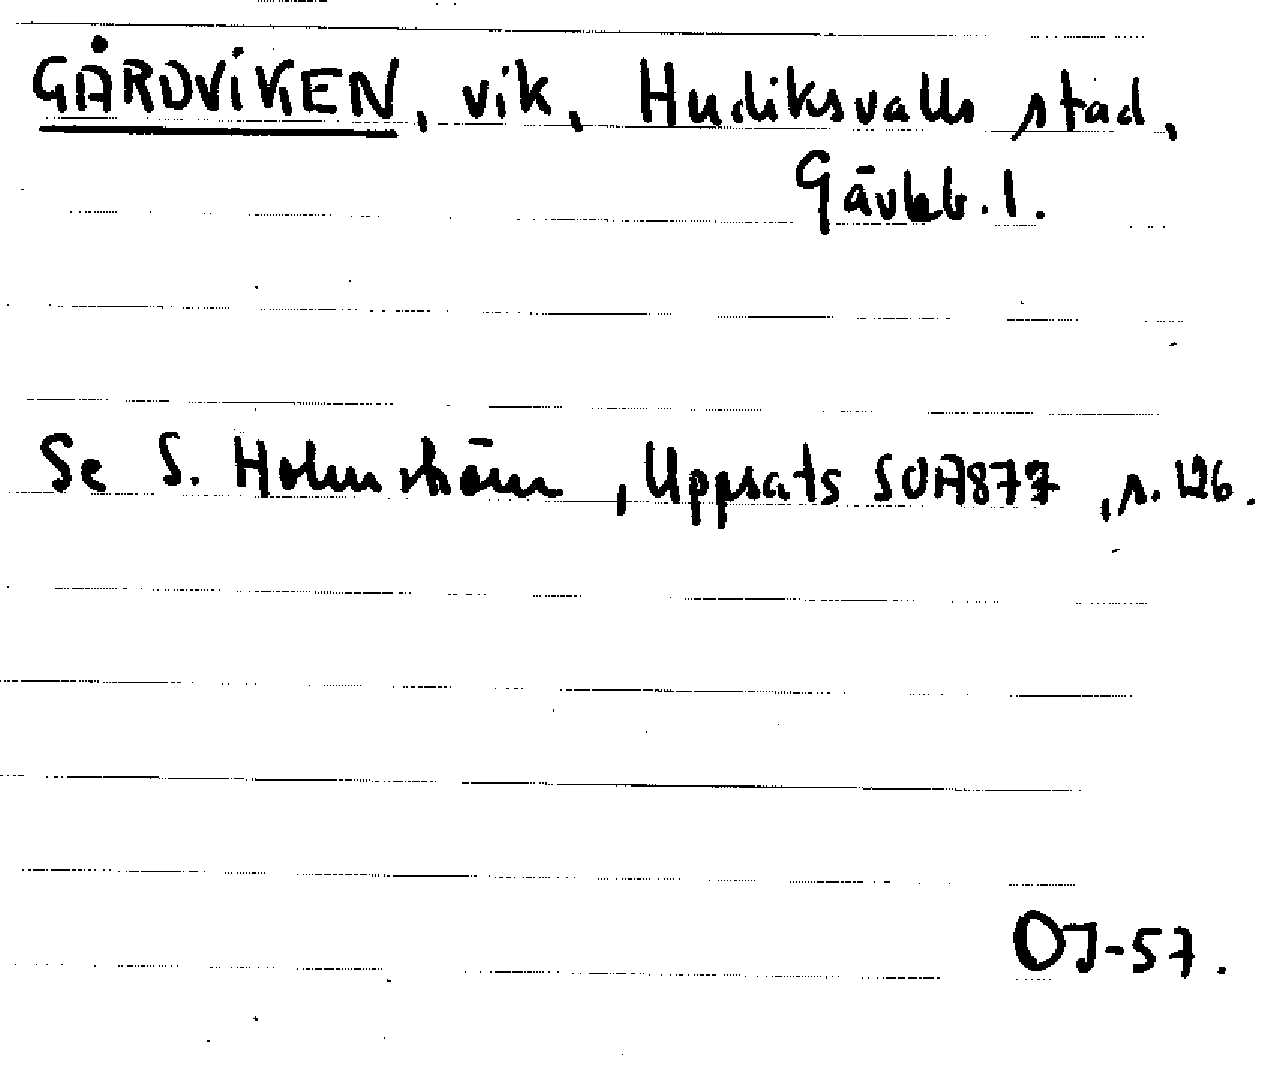 GÅRDVIKEN, vik, Hudiksvalls stad,
Gävleb. l.
Se S. Holmström, Uppsats SOA877, s. 126.
OJ-57.